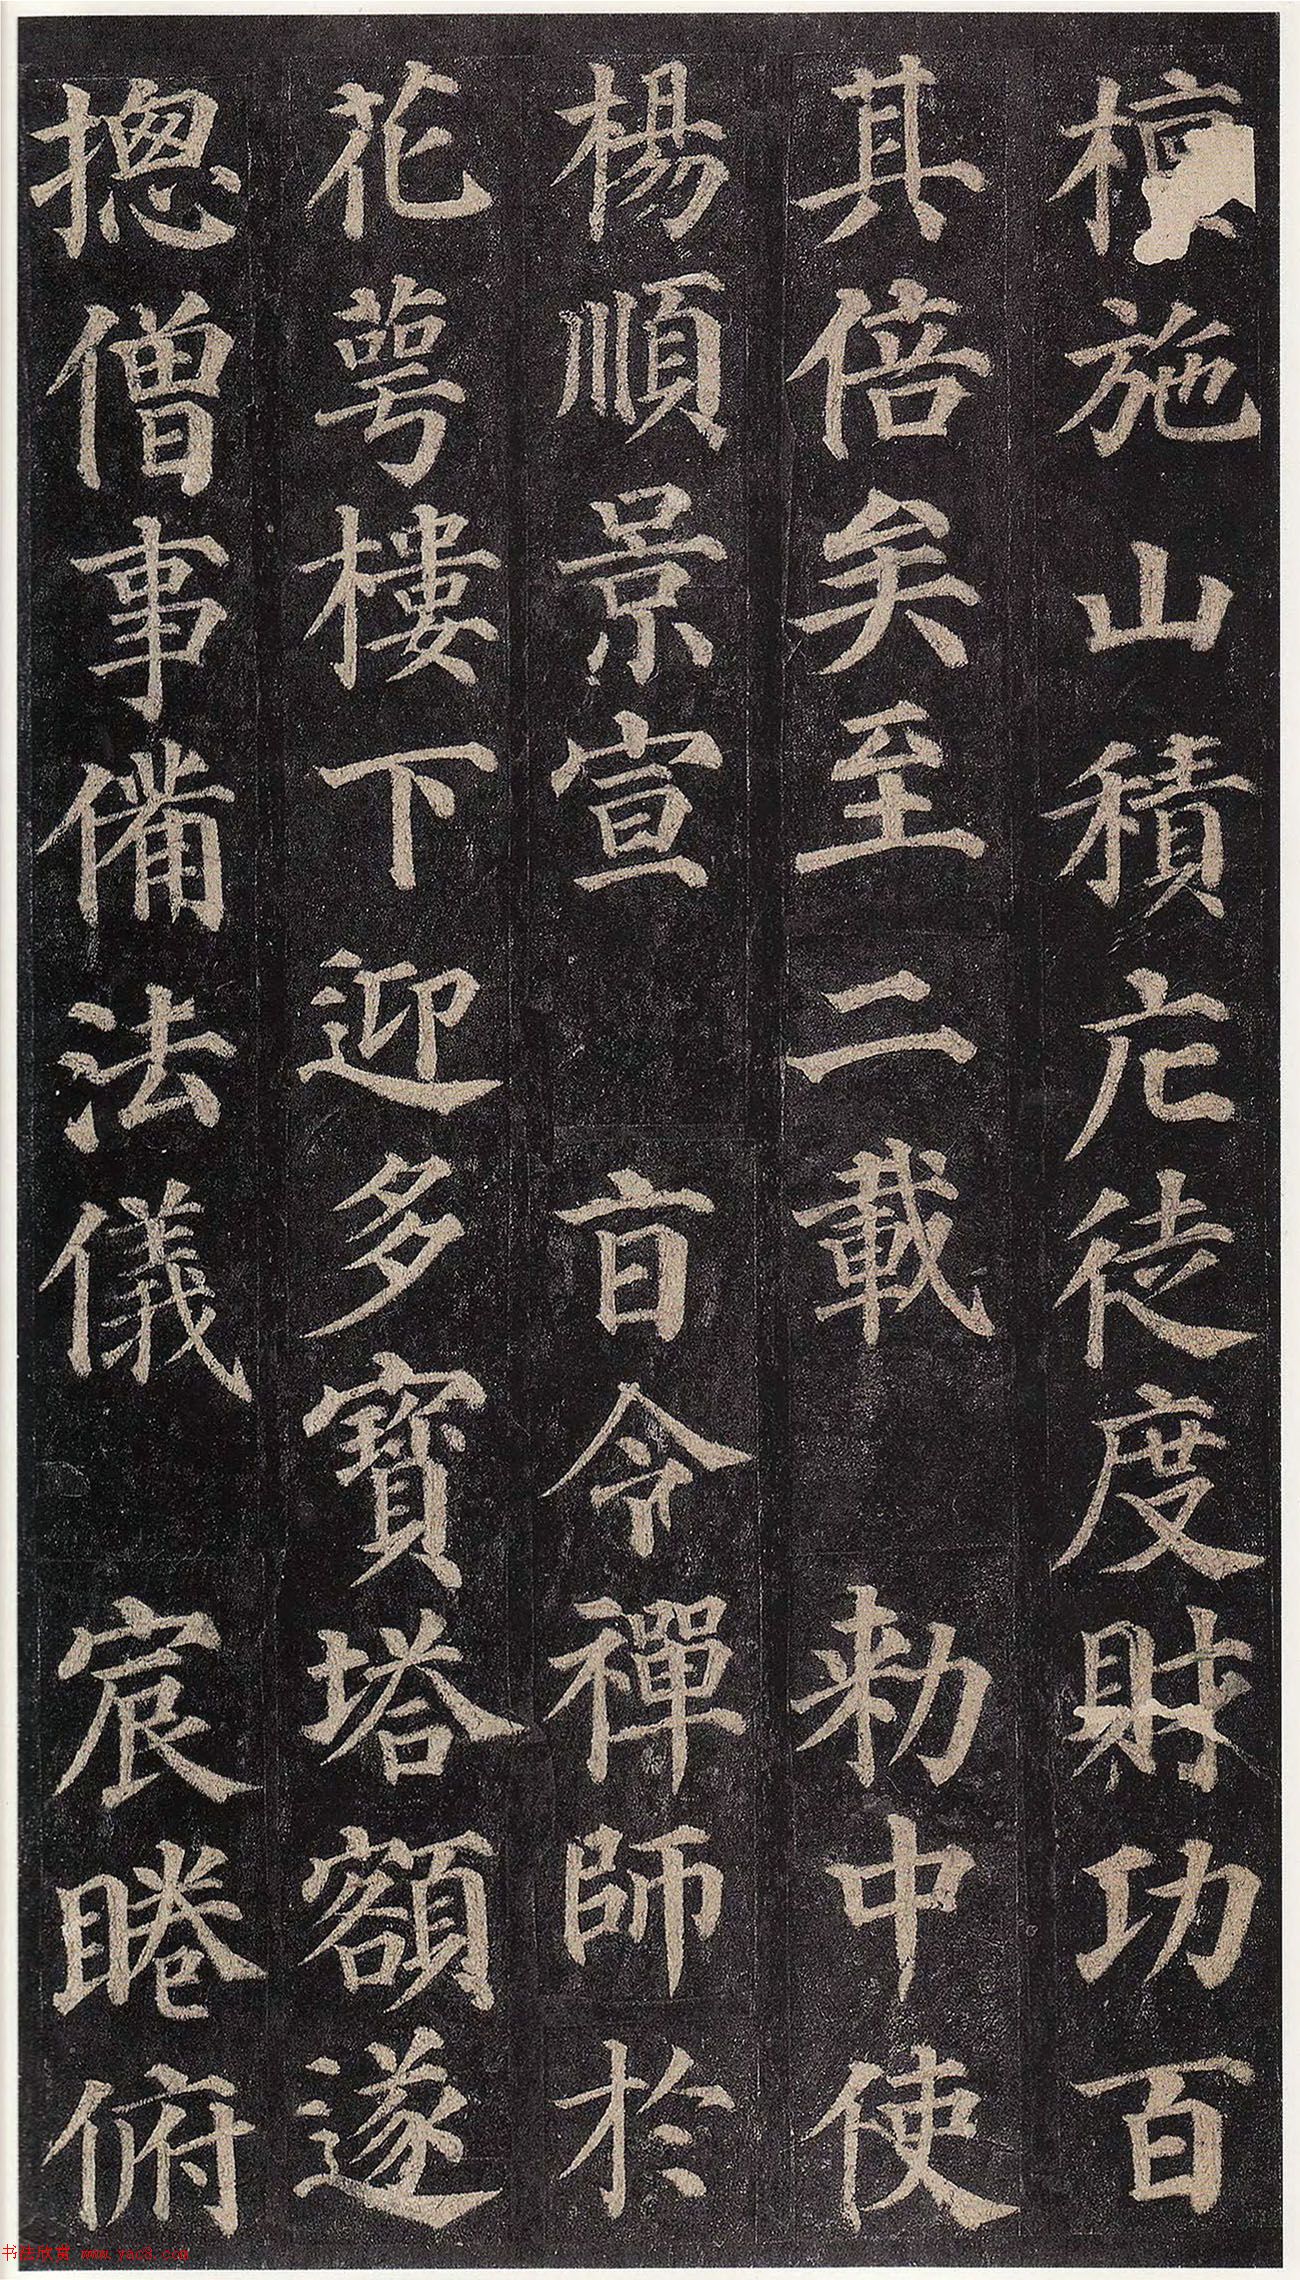 檀施山積庀徒度財功百
其倍矣至二載敕中使
楊順景宣旨令禪師於
花萼樓下迎多寶塔額遂
摠僧事備法儀宸睠俯
书法欣赏 www.yac8.com